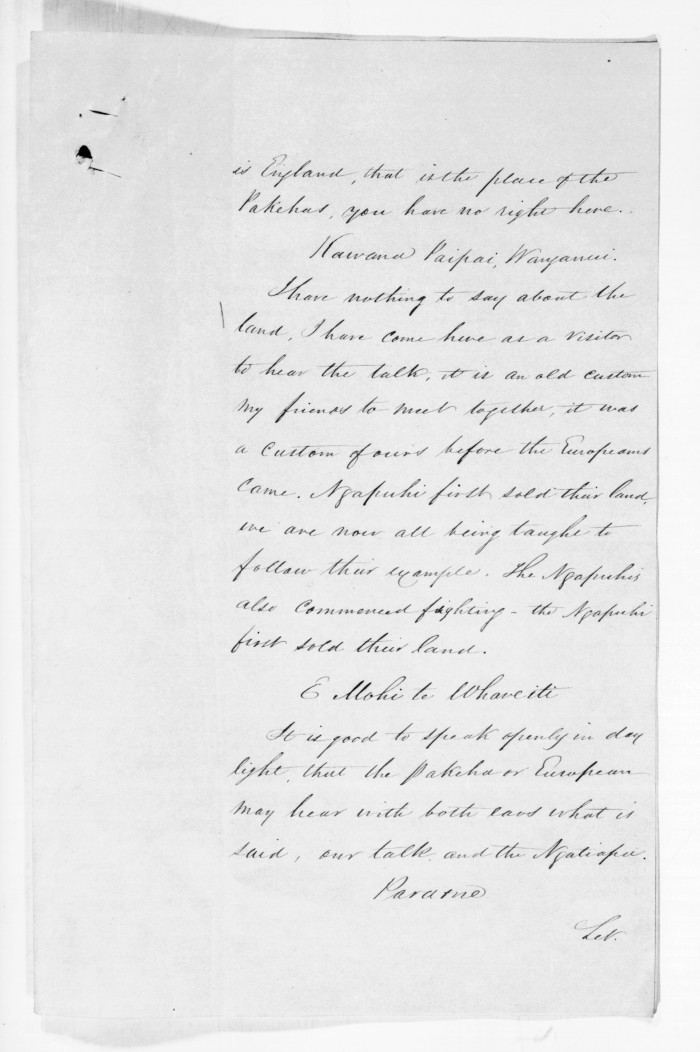 is England, that is the place of the
Pakehas, you have no right here.
Kawana Paipai, Wanganui.
I have nothing to say about the
land, I have come here as a visitor
to hear the talk, it is an old custom
my friends to meet together, it was
a custom of ours before the Europeans
came. Ngapuhi first sold their land,
we are now all being taught to
follow their example. The Ngapuhis
also commenced fighting - the Ngapuhi
first sold their land.
E Mohi te Whareiti
It is good to speak openly in day
light, that the Pakeha or European
may hear with both ears what is
said, our talk and the Ngatiapa.
Paratene
Let.